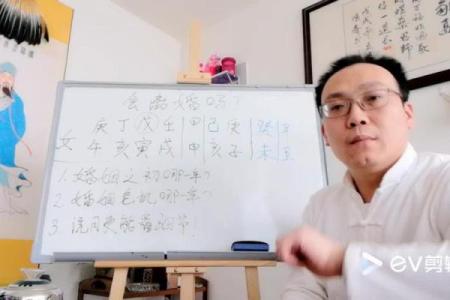 会离婚吗?
庚丁戊壬甲己庚癸辛
女午亥寅戌申亥子未丑
1.婚姻之初哪一年?
2.婚姻危机哪一年?
3.流月更能看细节.
EV剪辑